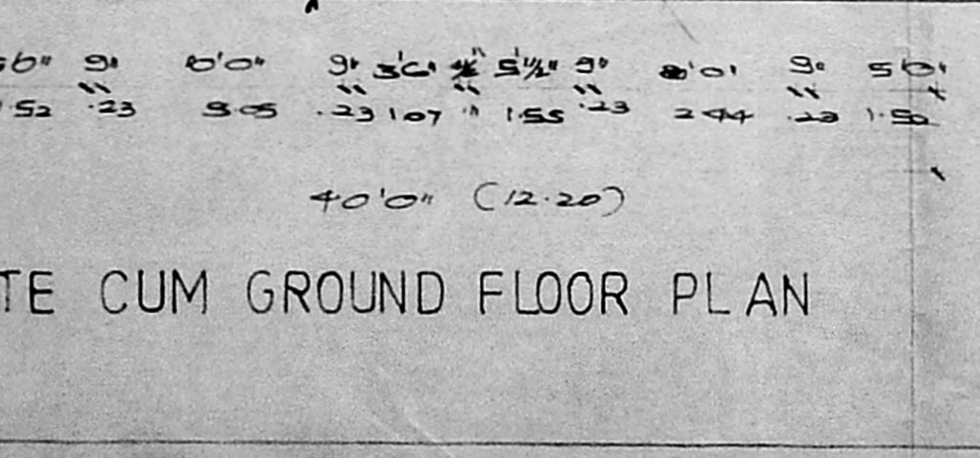 9" 9" 5'1½" 9" 9" 5'0"
.52 .23 3.05 .23 1.07 " 1.55 .23 2.44 .23 1.52
40'0" (12.20)
TE CUM GROUND FLOOR PLAN